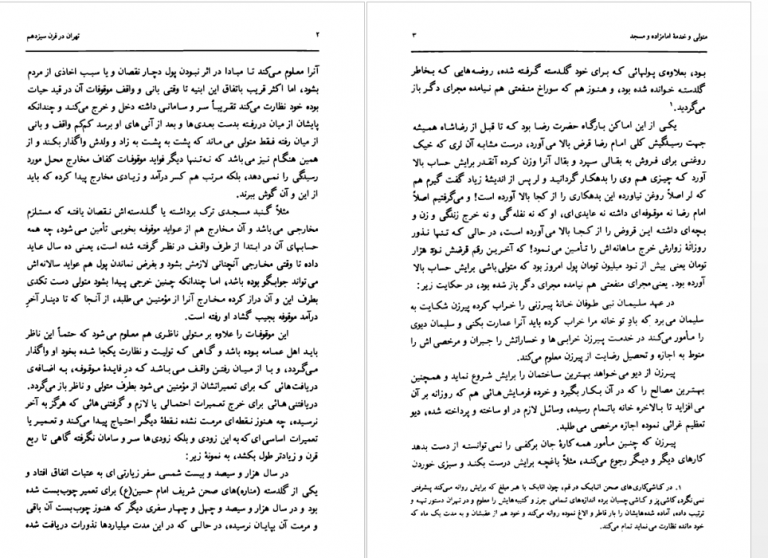 ۲ تهران در قرن سیزدهم
آنرا معلوم می‌کند تا مبادا در اثر نبودن پول دچار نقصان و یا سبب اخاذی از مردم
بشود، اما اکثر قریب باتفاق این ابنیه تا وقتی بانی و واقف موقوفات آن در قید حیات
بوده خود نظارت می‌کند تقریباً سر و سامانی داشته دخل و خرج می‌کند و چندانکه
پایشان از میان در رفته بدست بعدی‌ها و بعد از آنی‌های او برسد کم‌کم واقف و بانی
از میان رفته فقط متولی می‌ماند که پشت به پشت به زاد و ولدش واگذار بکند و از
همین هنگام نیز می‌باشد که نه‌تنها دیگر فواید موقوفات کفاف مخارج محل مورد
رسیدگی را نمی‌دهد، بلکه مرتب هم کسر درآمد و زیادی مخارج پیدا کرده که باید
از این و آن گوش ببرند.
مثلاً گنبد مسجدی ترک برداشته یا گلدسته‌اش نقصان یافته که مستلزم
مخارجی می‌باشد و آن مخارج هم از عواید موقوفه بخوبی تأمین می‌شود، چه همه
حسابهای آن در ابتدا از طرف واقف در نظر گرفته شده است، یعنی ده سال عاید
داده تا وقتی مخارجی آنچنانی لازمش بشود و بفرض نماندن پول هم عواید سالانه‌اش
می‌تواند جوابگو بوده باشد، اما چندانکه چنین خرجی پیدا بشود متولی دست تکدی
بطرف این و آن دراز کرده مخارج آنرا از مؤمنین می‌طلبد، از آنجا که تا دینار آخر
درآمد موقوفه بجیب گشاد او رفته است.
این موقوفات را علاوه بر متولی ناظری هم معلوم می‌شود که حتماً این ناظر
باید اهل عمامه بوده باشد و گاهی که تولیت و نظارت یکجا شده بخود او واگذار
می‌گردد، و با از میان رفتن واقف می‌باشد که در فایدهٔ موقوفه، به اضافه‌ی
دریافتهائی که برای تعمیراتشان از مؤمنین می‌شود بطرف متولی و ناظر باز می‌گردد.
دریافتنی هائی برای خرج تعمیرات احتمالی یا لازم و گرفتنی‌هائی که هرگز به آخر
نرسیده، چه هنوز نقطه‌ای مرمت نشده نقطهٔ دیگر احتیاج پیدا می‌کند و تعمیر یا
تعمیرات اساسی ای که به این زودی و بلکه زودی‌ها سر و سامان نگرفته گاهی تا ربع
قرن و زیادتر طول بکشد، به نمونهٔ زیر:
در سال هزار و سیصد و بیست شمسی سفر زیارتی ای به عتبات اتفاق افتاد و
یکی از گلدسته (مناره)های صحن شریف امام حسین(ع) برای تعمیر چوب‌بست شده
بود و در سال هزار و سیصد و چهل و چهار سفری دیگر که هنوز چوب‌بست آن باقی
و مرمت آن بپایان نرسیده، در حالی که در این مدت میلیاردها نذورات دریافت شده
متولی و خدمهٔ امامزاده و مسجد ۳
بود، بعلاوه‌ی پولهائی که برای خود گلدسته گرفته شده، روضه‌هایی که بخاطر
گلدسته خوانده شده بود، و هنوز هم که سوراخ منفعتی هم نیامده مجرای دگر باز
می‌گردید.۱
یکی از این اماکن بارگاه حضرت رضا بود که تا قبل از رضاشاه همیشه
جهت رسیدگیش کلی امام رضا قرض بالا می‌آورد، درست مشابه آن لری که خیک
روغنی برای فروش به بقالی سپرد و بقال آنرا وزن کرده آنقدر برایش حساب بالا
آورد که چیزی هم وی را بدهکار گردانید و لر پس از اندیشهٔ زیاد گفت گیرم هم
که لر اصلاً روغن نیاورده این بدهکاری را از کجا بالا آورده است! و می‌گفتیم اصلاً
امام رضا نه موقوفه‌ای داشته نه عایدی‌ای، او که نه نفله‌گی و نه خرج زندگی و زن و
بچه‌ای داشته این قروض را از کجا بالا می‌آورده است، در حالی که تنها نذور
روزانهٔ زوارش خرج ماهانه‌اش را تأمین می‌نمود! که آخرین رقم قرضش نود هزار
تومان یعنی بیش از نود میلیون تومان پول امروز بود که متولی‌باشی برایش حساب بالا
آورده بود. یعنی مجرای منفعتی هم نیامده مجرای دگر باز شده بود، در حکایت زیر:
در عهد سلیمان نبی طوفان خانهٔ پیرزنی را خراب کرده پیرزن شکایت به
سلیمان می‌برد که بادِ تو خانه مرا خراب کرده باید آنرا عمارت بکنی و سلیمان دیوی
را مأمور می‌کند در خدمت پیرزن خرابی‌ها و خساراتش را جبران و مرخصی‌اش را
منوط به اجازه و تحصیل رضایت از پیرزن معلوم می‌کند.
پیرزن از دیو می‌خواهد بهترین ساختمان را برایش شروع نماید و همچنین
بهترین مصالح را که در آن بکار بگیرد و خرده فرمایش‌هائی هم که روزانه بر آن
می‌افزاید تا بالاخره خانه باتمام رسیده، وسائل لازم در او ساخته و پرداخته شده، دیو
تعظیم غرائی نموده اجازه مرخصی می‌طلبد.
پیرزن که چنین مأمور همه‌کارهٔ جان برکفی را نمی‌توانسته از دست بدهد
کارهای دیگر و دیگر رجوع می‌کند، مثلاً باغچه برایش درست بکند و سبزی خوردن
۱. در کاشی‌کاری‌های صحن اتابک در قم، چون اتابک با هر مبلغ که برایش روانه می‌کند پیشرفتی
نمی‌نگرد، کاشی‌پز و کاشی چسبان برده اندازه‌های تمامی جرز و کتیبه‌هایش را معلوم و در تهران دستور تهیه و
ترتیب داده، آماده شده‌هایشان را بار قاطر و الاغ نموده روانه می‌کند و خود هم از عقبشان و به مدت یک ماه که
خود مانده نظارت می‌نماید تمام می‌کند.